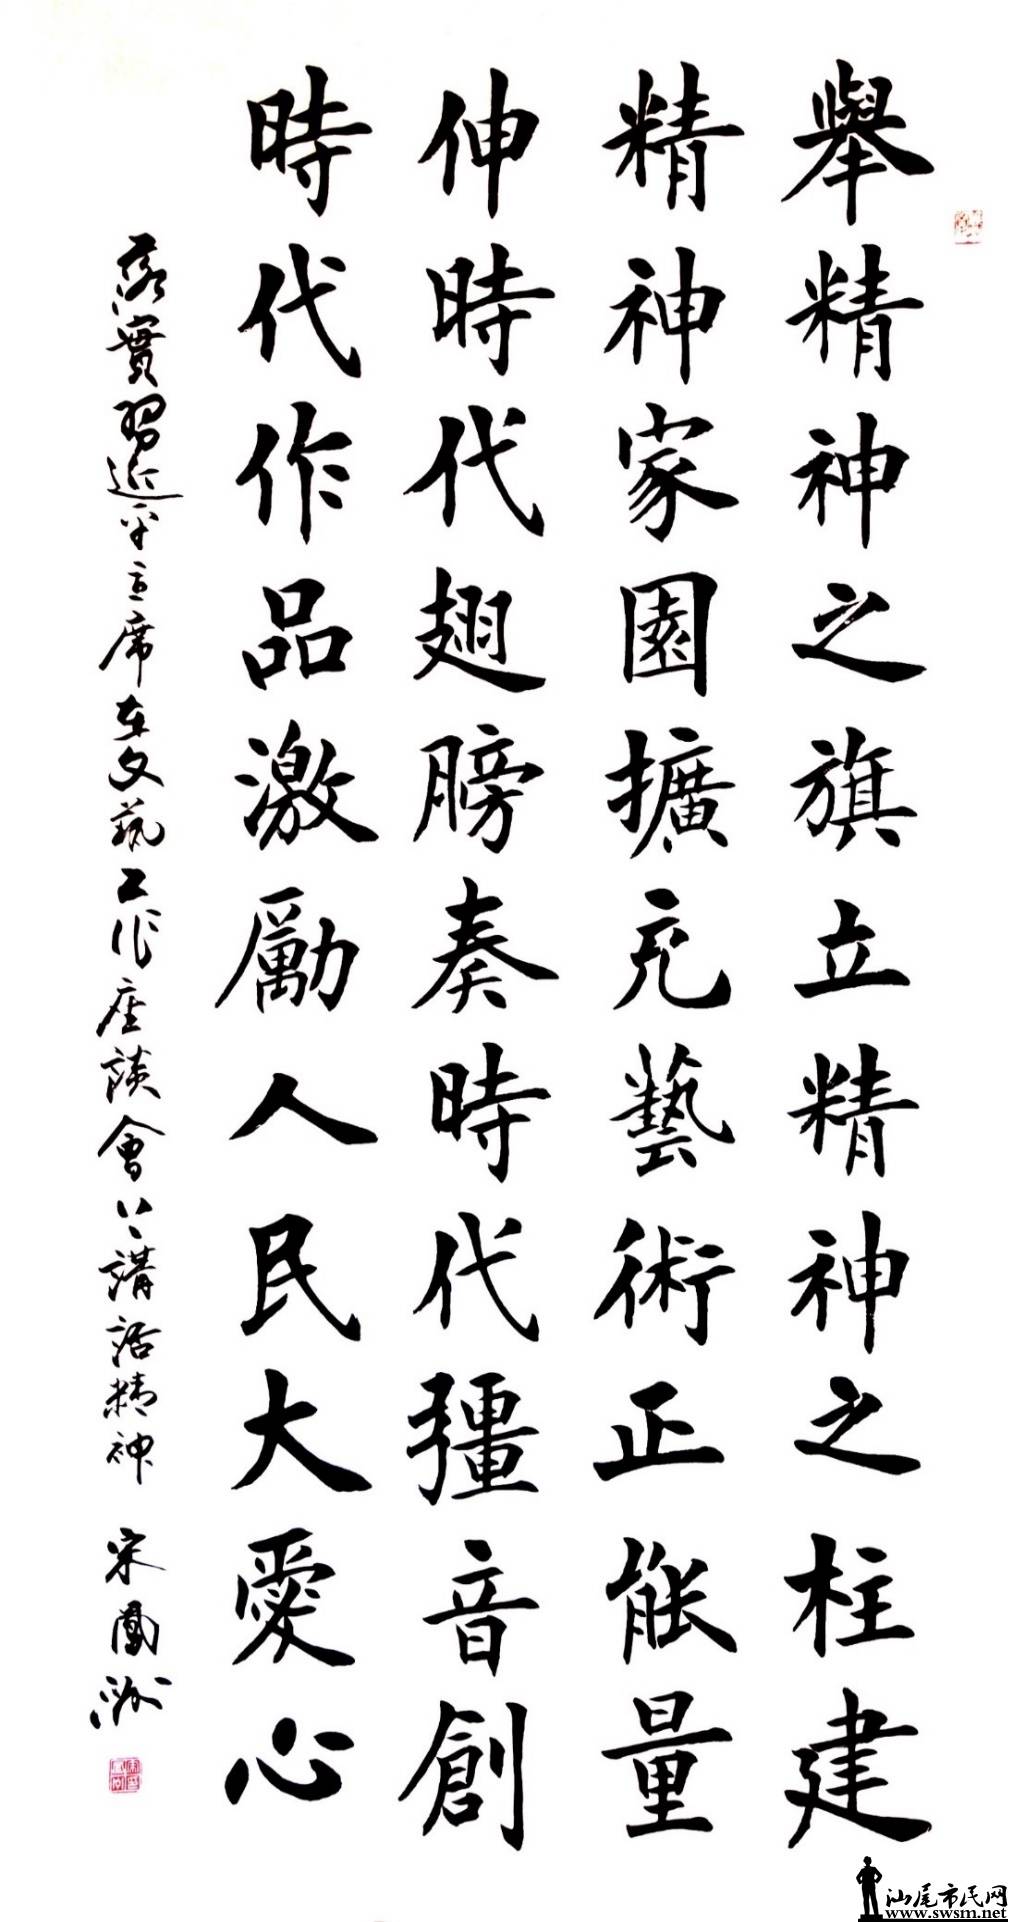 舉精神之旗立精神之柱建
精神家園擴充藝術正能量
伸時代翅膀奏時代彊音創
時代作品激勵人民大愛心
落實習近平主席在文藝工作座談會上講話精神 宋鳳洲
汕尾市民网
www.swsm.net